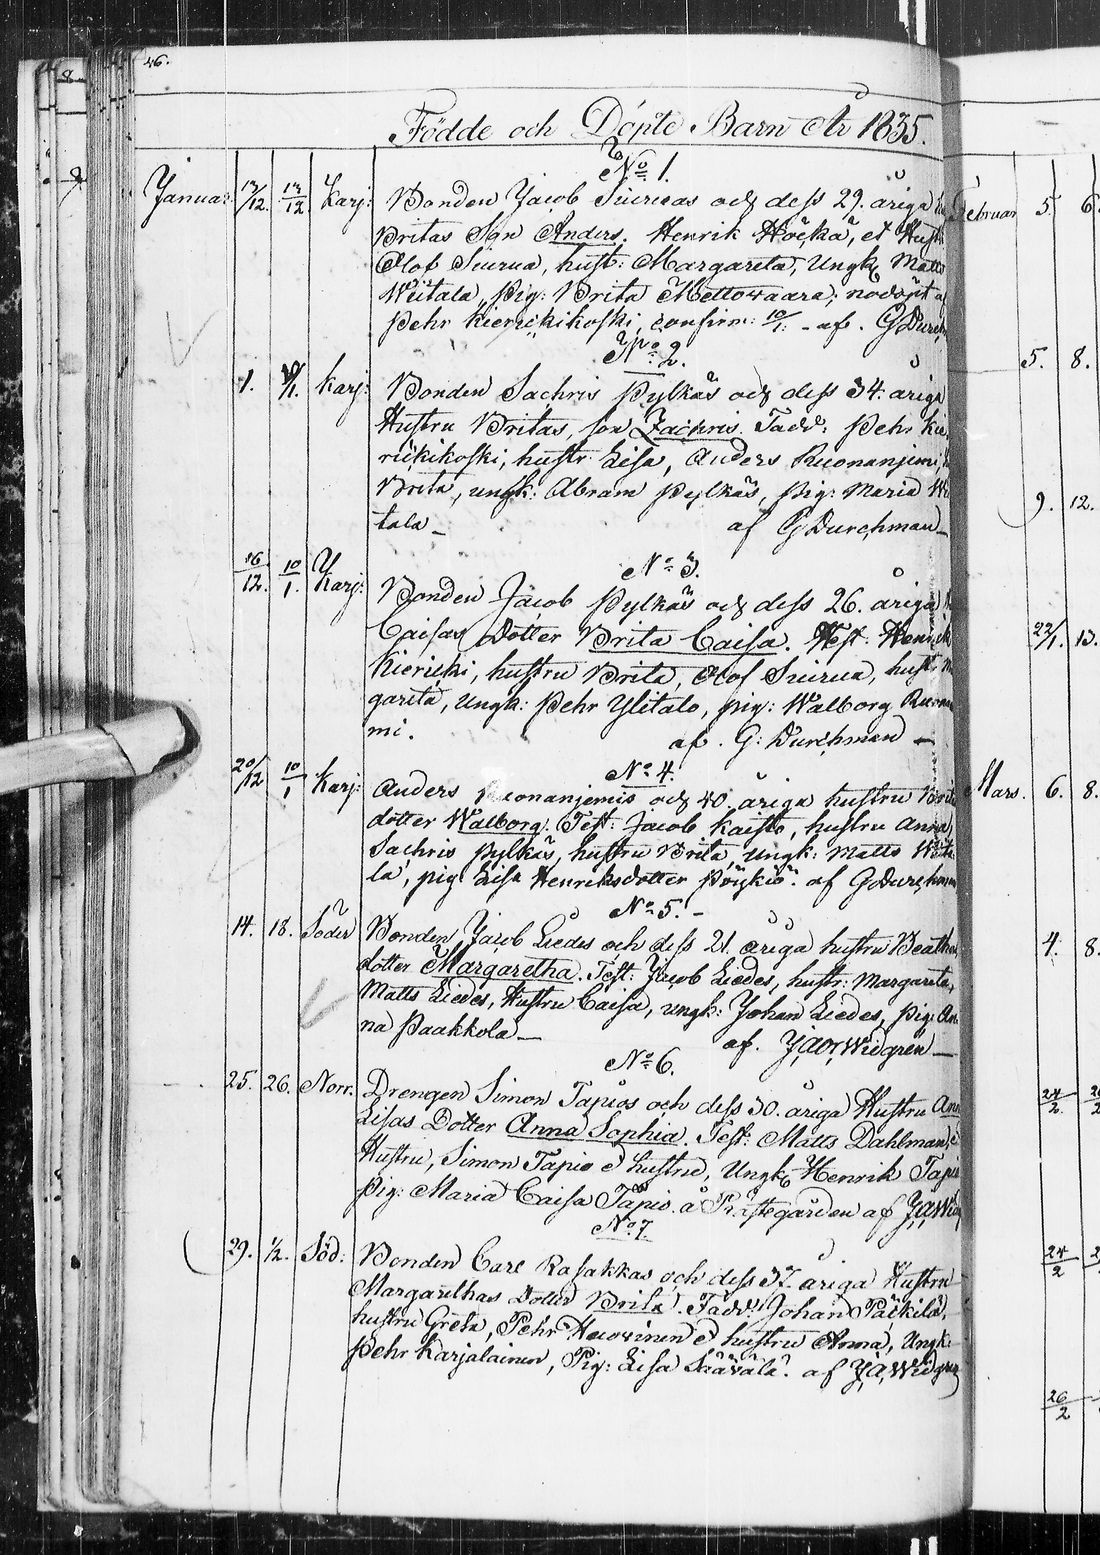 46.
Födde och Döpte Barn År 1835.
No 1.
Januar. 13/12. 13/12 Karj: Bonden Jacob Suiruas och dess 29. åriga
Britas Son Anders. Henrik Höckä, et Hustr
Olof Suirua, hust: Margareta, Ungk Matts
Weitala, Pig: Brita Mettowaara; nödöpt a
Pehr Kierickikoski, confirm: 10/1. - af. G Durch
No 2.
1. 10/1. Karj: Bonden Sachris Pylkäs och dess 34. åriga
Hustru Britas, son Zachris. Fadd: Pehr Kie
rickikoski, hustr. Lisa, Anders Ruonanjemi,
Brita, ungk: Abram Pylkäs, Pig: Maria We
tala_ af G Durchman_
No 3.
16/12. 10/1. Karj: Bonden Jacob Pylkäs och dess 26. åriga
Caisas Dotter Brita Caisa. Test: Henrick
Kiericki, hustru Brita, Olof Suirua, hustr M
garita, Ungk: Pehr Ylitalo, pig: Walborg Ruona
mi. af. G: Durchman _
No 4.
20/12 10/1 Karj: Anders Ruonanjemis och 40. åriga hustru Brita
dotter Walborg. Test: Jacob Kaisto, hustru Anna,
Sachris Pylkäs, hustru Brita, Ungk: Matts Weita
la, pig Lisa Henriksdotter Pöykiö. af G Durchman
No 5. -
14. 18. Söder Bonden Jacob Liedes och dess 21. åriga hustru Beathas
dotter Margaretha. Test: Jacob Liedes, hustr: Margareta,
Matts Liedes, Hustru Caisa, ungk: Johan Liedes, Pig: An
na Paakkola_ af. J, A, Widgren_
No 6.
25. 26. Norr. Drengen Simon Tapios och dess 30. åriga Hustru Ann
Lisas Dotter Anna Sophia. Test: Matts Dahlman, et
Hustru, Simon Tapio et hustru, Ungk Henrik Tapio
Pig: Maria Caisa Tapio å Prästegården af J, A Wid
No 7.
29. 1/2. Söd: Bonden Carl Rasakkas och dess 37. åriga Hustru
Margarethas Dotter Brita. Fadd: Johan Päckilä,
hustru Greta, Pehr Huowinen et hustru Anna, Ungk:
Pehr Karjalainen, Pig: Lisa Säävälä. af J, A, Widgren
Februar 5. 6.
5. 8.
9. 12.
22/1. 13.
Mars. 6. 8.
4. 8.
24/2.
24/2
26/2